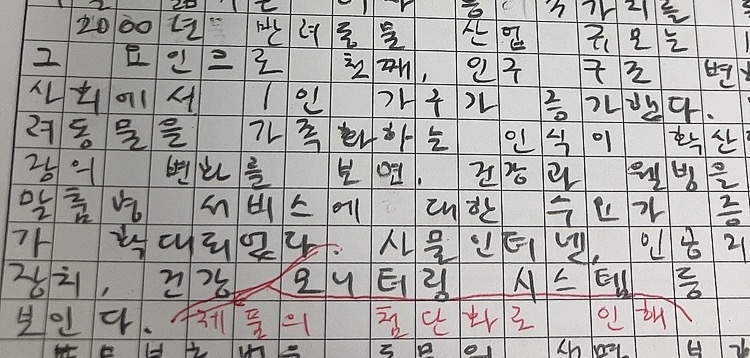 2000년 반려동물 산업 규모는
그 요인으로 첫째, 인구 구조 변
사회에서 1인 가구가 증가했다.
려동물을 가족화하는 인식이 확산
장의 변화를 보면, 건강과 웰빙을
맞춤형 서비스에 대한 수요가 증
가 확대되었다. 사물인터넷, 인공지
장치, 건강 모니터링 시스템 등
보인다. 제품의 첨단화로 인해